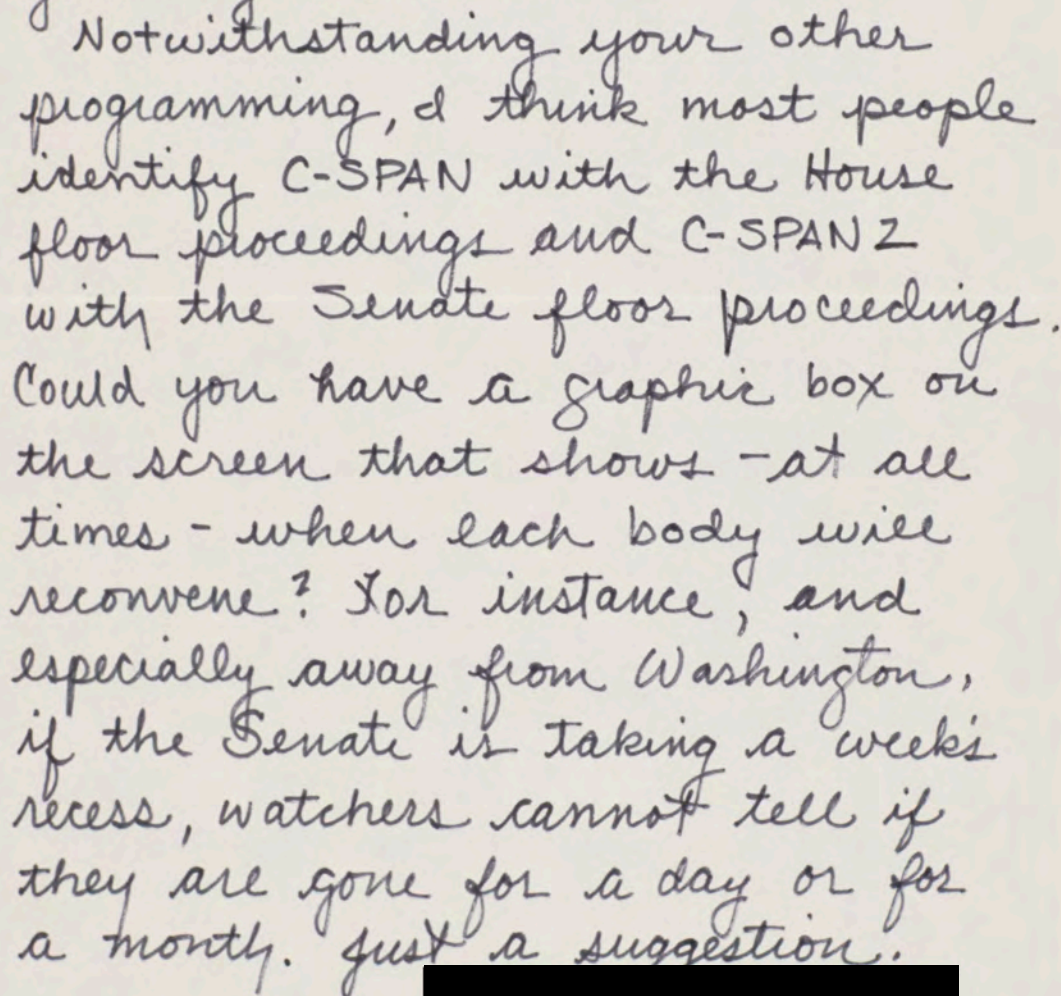 Notwithstanding your other
programming, I think most people
identify C-SPAN with the House
floor proceedings and C-SPAN 2
with the Senate floor proceedings.
Could you have a graphic box on
the screen that shows - at all
times - when each body will
reconvene? For instance, and
especially away from Washington,
if the Senate is taking a week's
recess, watchers cannot tell if
they are gone for a day or for
a month. Just a suggestion.